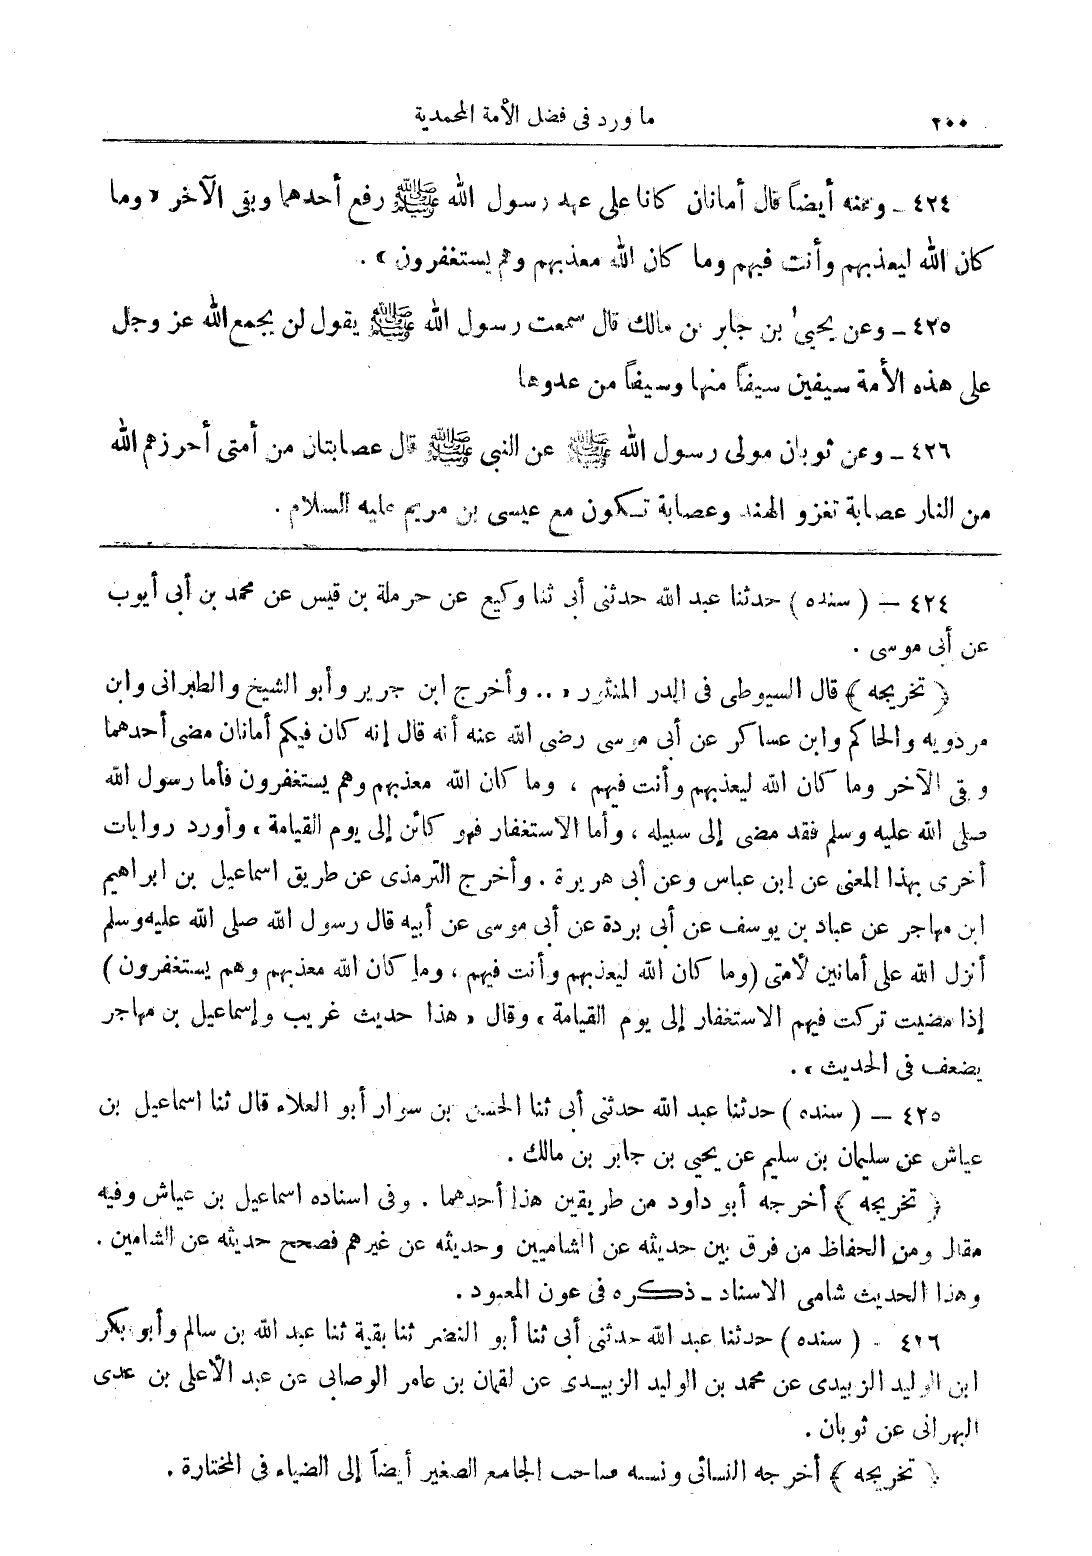 ٢٠٠ ما ورد فى فضل الأمة المحمدية
٤٢٤ ـ وعنه أيضاً قال أمانان كانا على عهد رسول الله ﷺ رفع أحدهما وبقى الآخر « وما
كان الله ليعذبهم وأنت فيهم وما كان الله معذبهم وهم يستغفرون » .
٤٢٥ ـ وعن يحيى بن جابر بن مالك قال سمعت رسول الله ﷺ يقول لن يجمع الله عز وجل
على هذه الأمة سيفين سيفاً منها وسيفاً من عدوها
٤٢٦ ـ وعن ثوبان مولى رسول الله ﷺ عن النبى ﷺ قال عصابتان من أمتى أحرزهم الله
من النار عصابة تغزو الهند وعصابة تكون مع عيسى بن مريم عليه السلام .
٤٢٤ — ( سنده ) حدثنا عبد الله حدثنى أبى ثنا وكيع عن حرملة بن قيس عن محمد بن أبى أيوب
عن أبى موسى .
﴿ تخريجه ﴾ قال السيوطى فى الدر المنثور « .. وأخرج ابن جرير وأبو الشيخ والطبرانى وابن
مردويه والحاكم وابن عساكر عن أبى موسى رضى الله عنه أنه قال إنه كان فيكم أمانان مضى أحدهما
وبقى الآخر وما كان الله ليعذبهم وأنت فيهم ، وما كان الله معذبهم وهم يستغفرون فأما رسول الله
صلى الله عليه وسلم فقد مضى إلى سبيله ، وأما الاستغفار فهو كائن إلى يوم القيامة » وأورد روايات
أخرى بهذا المعنى عن ابن عباس وعن أبى هريرة . وأخرج الترمذى عن طريق اسماعيل بن ابراهيم
ابن مهاجر عن عباد بن يوسف عن أبى بردة عن أبى موسى عن أبيه قال رسول الله صلى الله عليه وسلم
أنزل الله على أمانين لأمتى (وما كان الله ليعذبهم وأنت فيهم ، وما كان الله معذبهم وهم يستغفرون )
إذا مضيت تركت فيهم الاستغفار إلى يوم القيامة » وقال « هذا حديث غريب وإسماعيل بن مهاجر
يضعف فى الحديث » .
٤٢٥ — ( سنده ) حدثنا عبد الله حدثنى أبى ثنا الحسن بن سوار أبو العلاء قال ثنا اسماعيل بن
عياش عن سليمان بن سليم عن يحيى بن جابر بن مالك .
﴿ تخريجه ﴾ أخرجه أبو داود من طريقين هذا أحدهما . وفى اسناده اسماعيل بن عياش وفيه
مقال ومن الحفاظ من فرق بين حديثه عن الشاميين وحديثه عن غيرهم فصحح حديثه عن الشامين .
وهذا الحديث شامى الاسناد ـ ذكره فى عون المعبود .
٤٢٦ - ( سنده ) حدثنا عبد الله حدثنى أبى ثنا أبو النضر ثنا بقية ثنا عبد الله بن سالم وأبو بكر
ابن الوليد الزبيدى عن محمد بن الوليد الزبيدى عن لقمان بن عامر الوصابى عن عبد الأعلى بن عدى
البهرانى عن ثوبان .
﴿ تخريجه ﴾ أخرجه النسائى ونسبه صاحب الجامع الصغير أيضاً إلى الضياء فى المختارة .